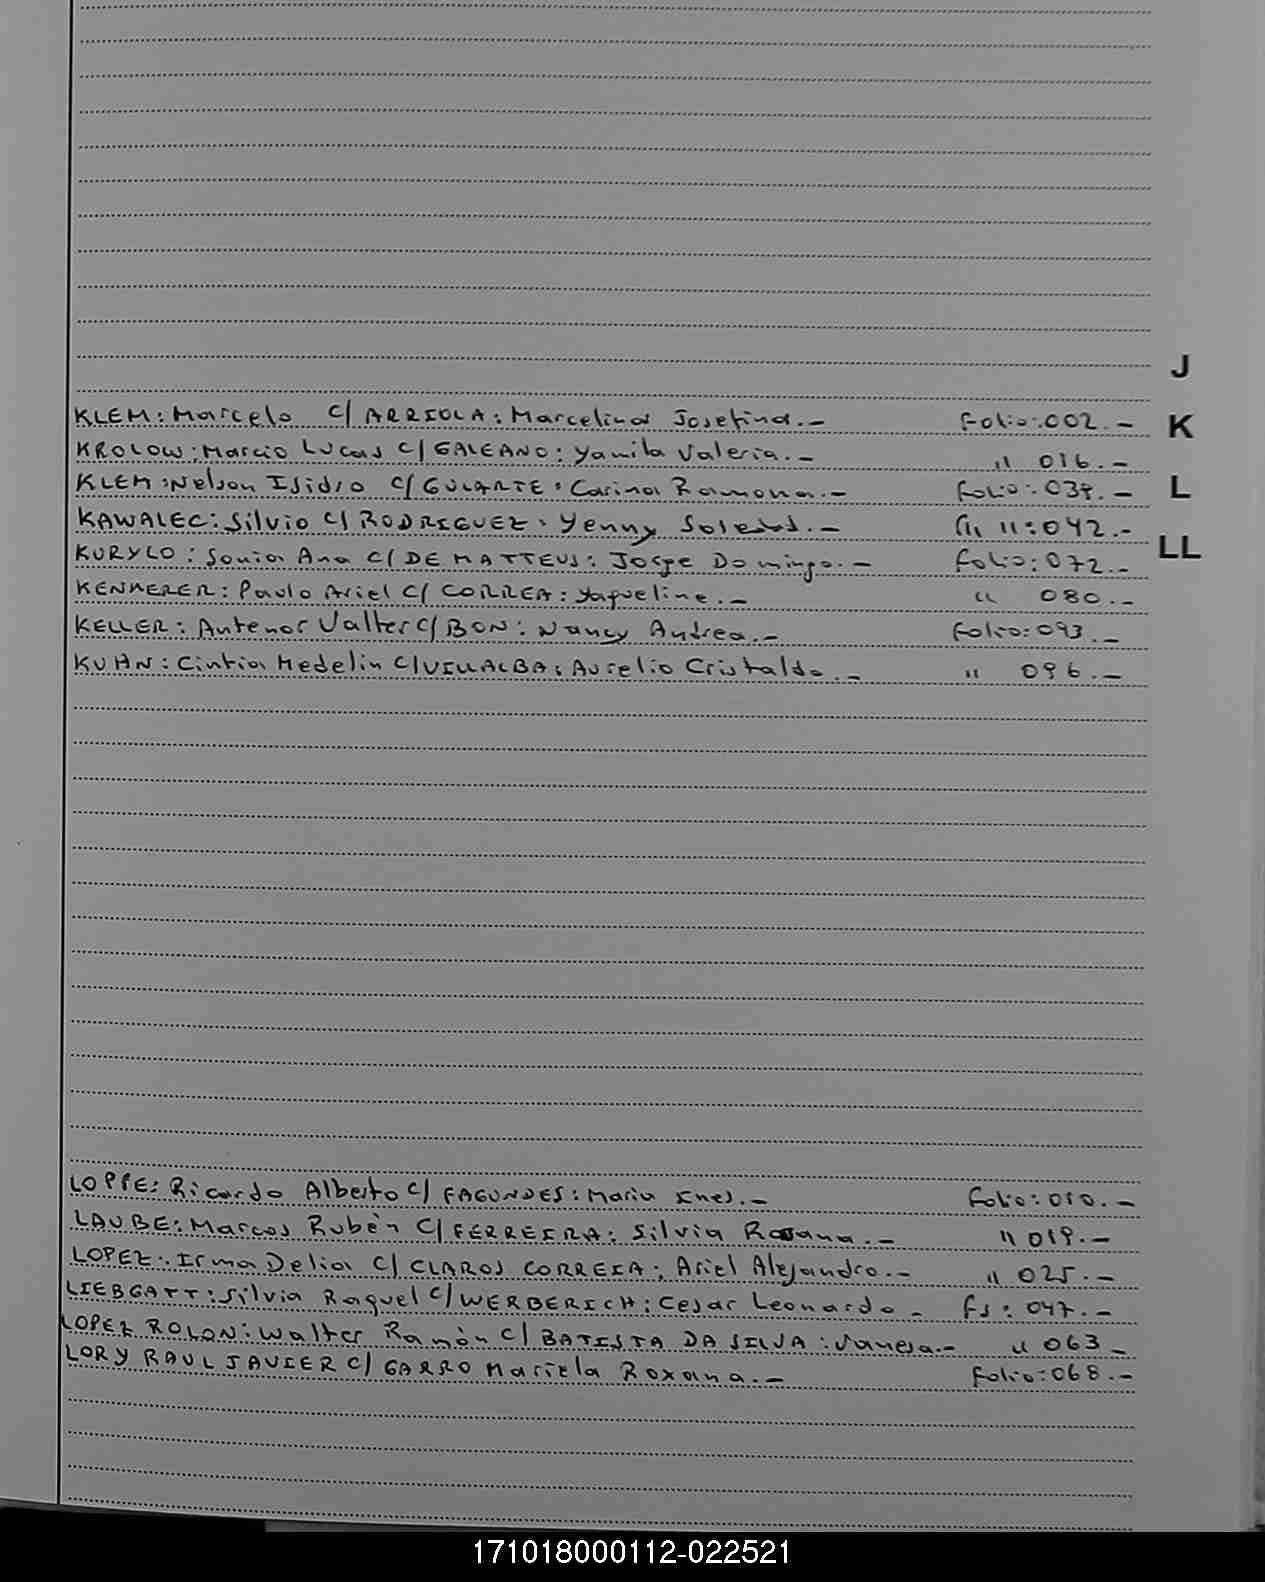 J
KLEM: Marcelo c/ ARRIOLA: Marcelina Josefina.- Folio:002.-
K
KROLOW: Marcio Lucas c/ GALEANO: Yamila Valeria.- " 016.-
KLEM: Nelson Isidro c/ GULARTE: Carina Ramona.- Folio:034.-
L
KAWALEC: Silvio c/ RODRIGUEZ: Yenny Soledad.- " ":042.-
LL
KURYLO: Sonia Ana c/ DE MATTEUS: Jorge Domingo.- Folio:072.-
KENMERER: Paulo Ariel c/ CORREA: Yaqueline.- " 080.-
KELLER: Antenor Valter c/ BON: Nancy Andrea.- Folio:093.-
KUHN: Cintia Medelin c/ VILLALBA: Aurelio Cristaldo.- " 096.-
LOPPE: Ricardo Alberto c/ FAGUNDES: Maria Ines.- Folio:010.-
LAUBE: Marcos Rubén c/ FERREIRA: Silvia Rosana.- " 019.-
LOPEZ: Irma Delia c/ CLAROS CORREIA: Ariel Alejandro.- " 025.-
LIEBGATT: Silvia Raquel c/ WERBERICH: Cesar Leonardo- Fs: 047.-
LOPEZ ROLON: Walter Ramón c/ BATISTA DA SILVA: Vanesa.- " 063-
LORY RAUL JAVIER c/ GARRO Mariela Roxana.- Folio:068.-
171018000112-022521